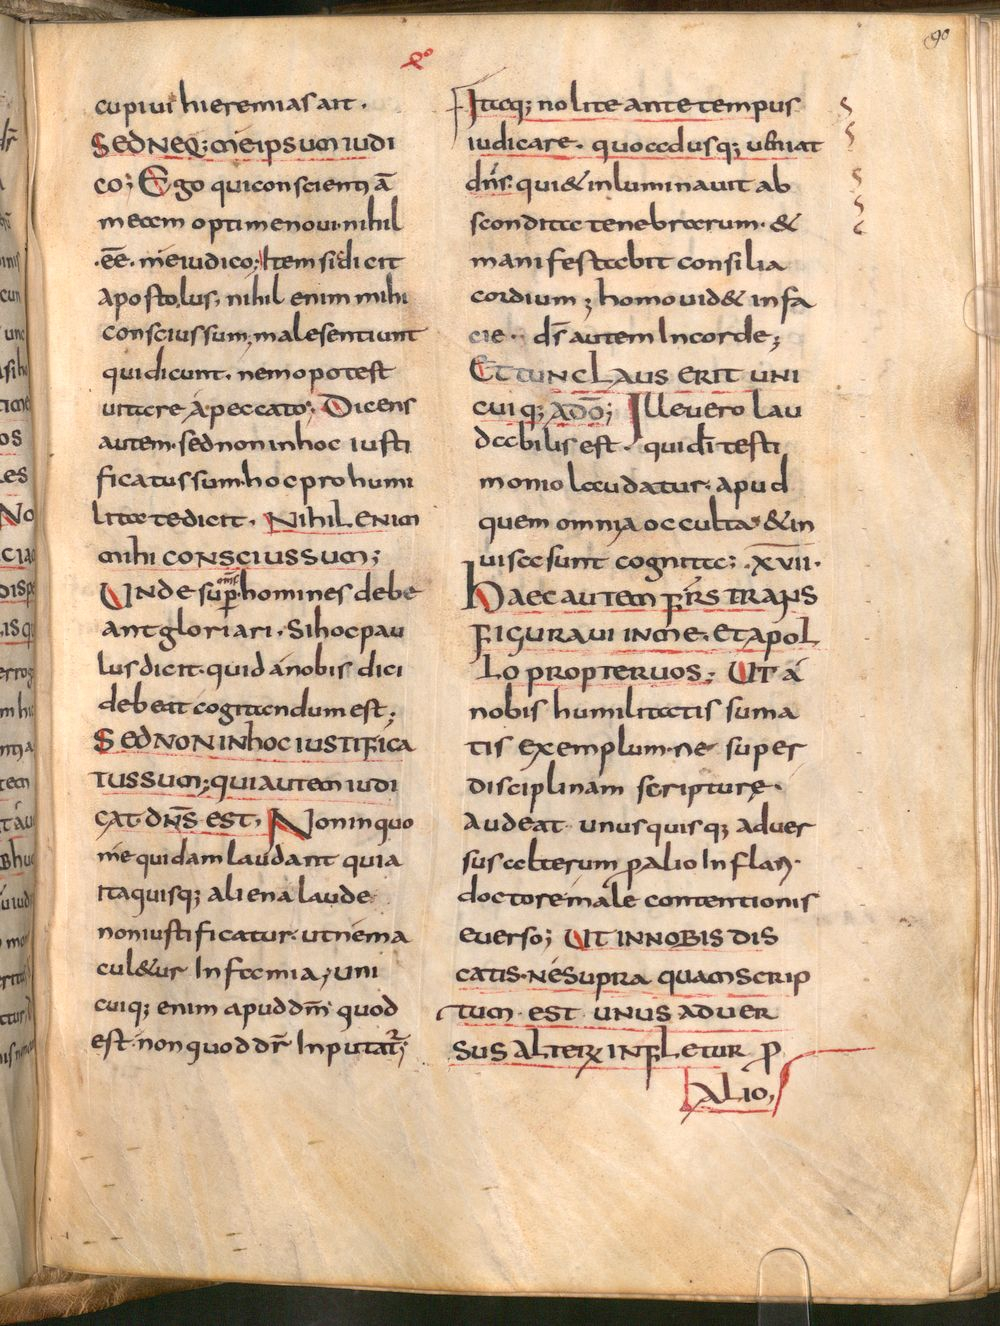 90
cupiui hieremias ait.
Sed neq; me ipsum iudi
co; Ego qui conscientiā
meam optime noui. nihil
.eē. me iudico; Item si dicit
apostolus, nihil enim mihi
conscius sum, male sentiunt
qui dicunt. nemo potest
uitare a peccato; Dicens
autem. sed non in hoc iusti
ficatus sum. hoc pro humi
litate dicit. Nihil enim
mihi conscius sum;
Unde sup homines debe
ant gloriari. Si hoc pau
lus dicit. quid a nobis dici
debeat cogitandum est;
Sed non in hoc iustifica
tus sum; qui autem iudi
cat. dn̄s est. Non in quo
me quidam laudant quia
ita quisq; aliena laude
non iustificatur. ut nec ma
cul&ur Infamia, uni
cuiq; enim apud dm̄ quod
est. non quod dr̄ Inputatr̄;
Itaq; nolite ante tempus
iudicare. quo adusq; ueniat
dn̄s. qui & inluminauit ab
scondita tenebrarum. &
manifestabit consilia
cordium; homo uid& in fa
cie. ds̄ autem In corde;
Et tunc laus erit uni
cuiq; a dō; Ille uero lau
dabilis est. qui dī testi
monio laudatur. apud
quem omnia occulta & in
uisa sunt cognita; .xvii.
Haec autem fr̄s trans
figuraui in me. et apol
lo propter uos; Ut a
nobis humilitatis suma
tis exemplum. ne super
disciplinam scripturę.
audeat unusquisq; aduer
sus alterum p alio Inflari.
doctore male contentionis
euerso; Ut in nobis dis
catis. ne supra quam scrip
tum est unus aduer
sus alterū infletur p
alio,